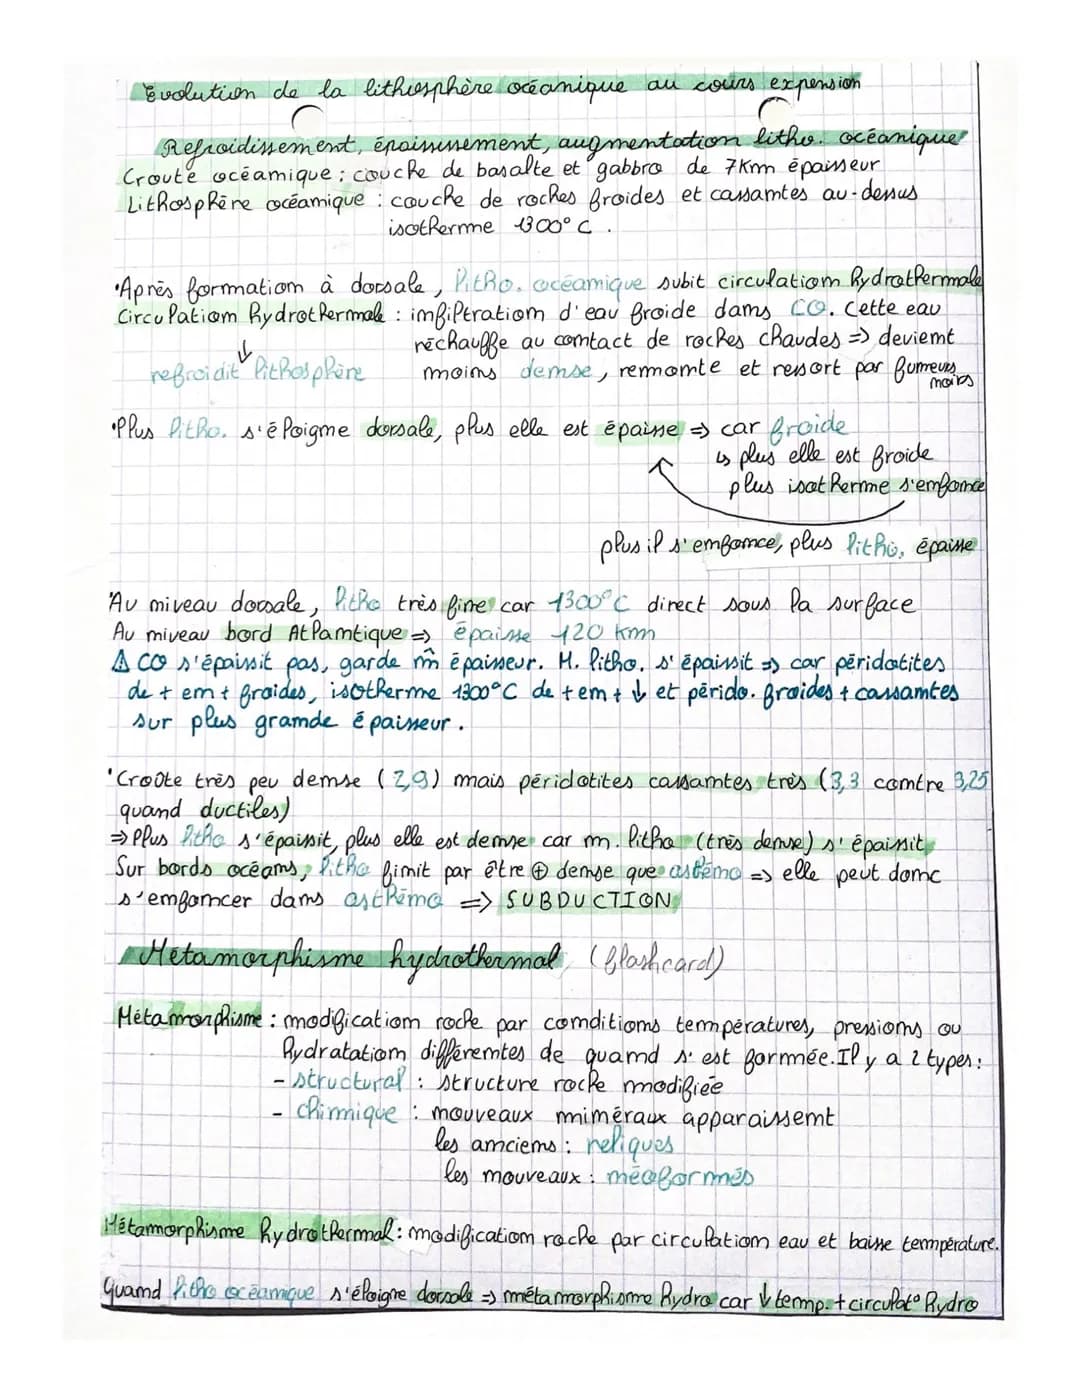 Évolution de la lithosphère océanique au cours expension
Refroidissement, épaississement, augmentation litho. océanique
Croute océanique : couche de basalte et gabbro de 7km épaisseur
Lithosphère océanique : couche de roches froides et cassantes au-dessus
isotherme 1300°C.
•Après formation à dorsale, litho. océanique subit circulation hydrothermale
Circulation hydrothermale : infiltration d'eau froide dans CO. Cette eau
réchauffe au contact de roches chaudes => devient
↓
refroidit lithosphère moins dense, remonte et ressort par fumeurs
noirs
•Plus litho. s'éloigne dorsale, plus elle est épaisse => car froide
↳ plus elle est froide
plus isotherme s'enfonce
plus il s'enfonce, plus litho, épaisse
•Au niveau dorsale, litho très fine car 1300°C direct sous la surface
Au niveau bord Atlantique => épaisse 120 km
⚠ CO s'épaissit pas, garde m̂ épaisseur. M. litho. s'épaissit => car péridotites
de + en + froides, isotherme 1300°C de + en + ↓ et périдo. froides + cassantes
sur plus grande épaisseur.
•Croûte très peu dense (2,9) mais péridotites cassantes très (3,3 contre 3,25
quand ductiles)
=> Plus litho s'épaissit, plus elle est dense car m. litho (très dense) s'épaissit
Sur bords océans, litho finit par être ⊕ dense que asthéno => elle peut donc
s'enfoncer dans asthéno => SUBDUCTION
Métamorphisme hydrothermal (flashcard)
Métamorphisme : modification roche par conditions températures, pressions ou
hydratation différentes de quand s'est formée. Il y a 2 types :
- structural : structure roche modifiée
- chimique : nouveaux minéraux apparaissent
les anciens : reliques
les nouveaux : néoformés
Métamorphisme hydrothermal : modification roche par circulation eau et baisse température.
Quand litho océanique s'éloigne dorsale => métamorphisme hydro car ↓ temp. + circulat° hydro